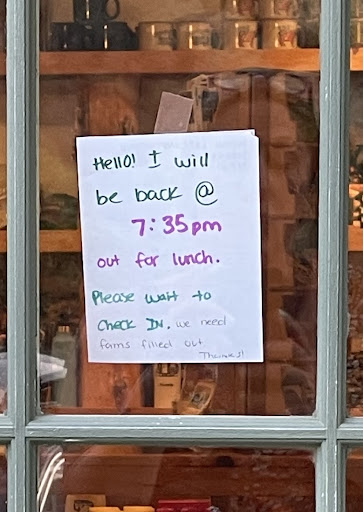 Hello! I will
be back @
7:35pm
out for lunch.
Please wait to
Check IN. we need
forms filled out
Thanks!